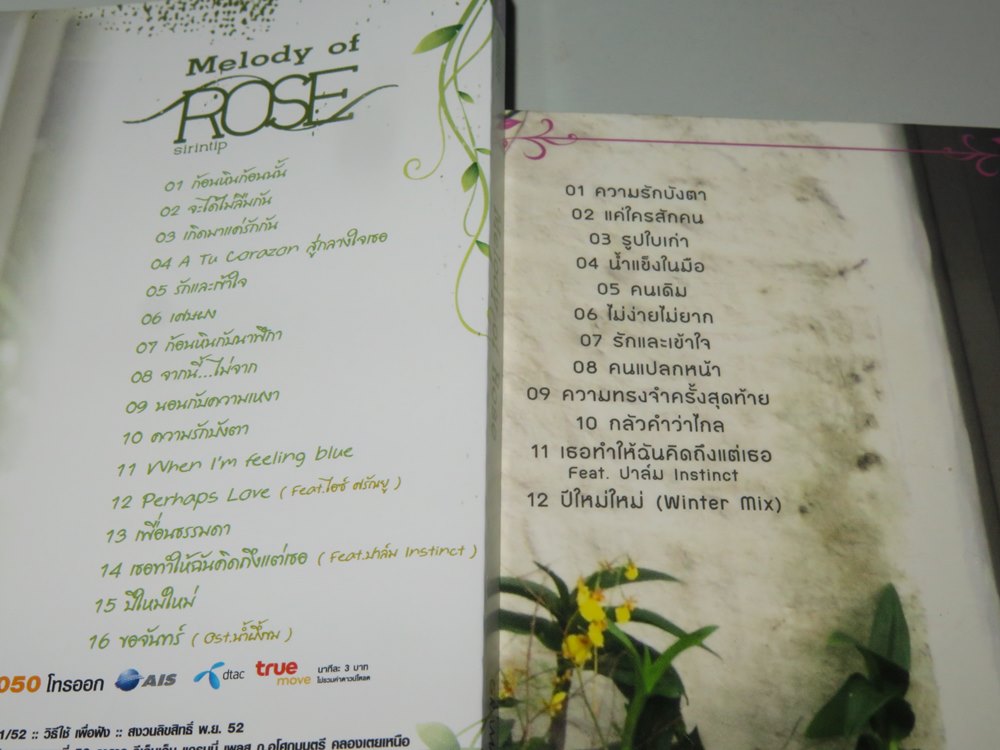 Melody of
ROSE
sirintip
01 ก้อนหินก้อนนั้น
02 จะได้ไม่ลืมกัน
03 เกิดมาแค่รักกัน
04 A Tu Corazon สู่กลางใจเธอ
05 รักและเข้าใจ
06 เศษผง
07 ก้อนหินกับนาฬิกา
08 จากนี้...ไม่จาก
09 นอนกับความเหงา
10 ความรักบังตา
11 When I'm feeling blue
12 Perhaps Love (Feat.ไอซ์ ศรัณยู)
13 เพื่อนธรรมดา
14 เธอทำให้ฉันคิดถึงแต่เธอ (Feat.ปาล์ม Instinct)
15 ปีใหม่ใหม่
16 ขอจันทร์ (Ost.น้ำผึ้งขม)
050 โทรออก AIS dtac true move นาทีละ 3 บาท
ไม่รวมค่าดาวน์โหลด
1/52 :: วิธีใช้ เพื่อฟัง :: สงวนลิขสิทธิ์ พ.ย. 52
จีเอ็มเอ็ม แกรมมี่ เพลส ถ.อโศกมนตรี คลองเตยเหนือ
01 ความรักบังตา
02 แค่ใครสักคน
03 รูปใบเก่า
04 น้ำแข็งในมือ
05 คนเดิม
06 ไม่ง่ายไม่ยาก
07 รักและเข้าใจ
08 คนแปลกหน้า
09 ความทรงจำครั้งสุดท้าย
10 กลัวคำว่าไกล
11 เธอทำให้ฉันคิดถึงแต่เธอ
Feat. ปาล์ม Instinct
12 ปีใหม่ใหม่ (Winter Mix)